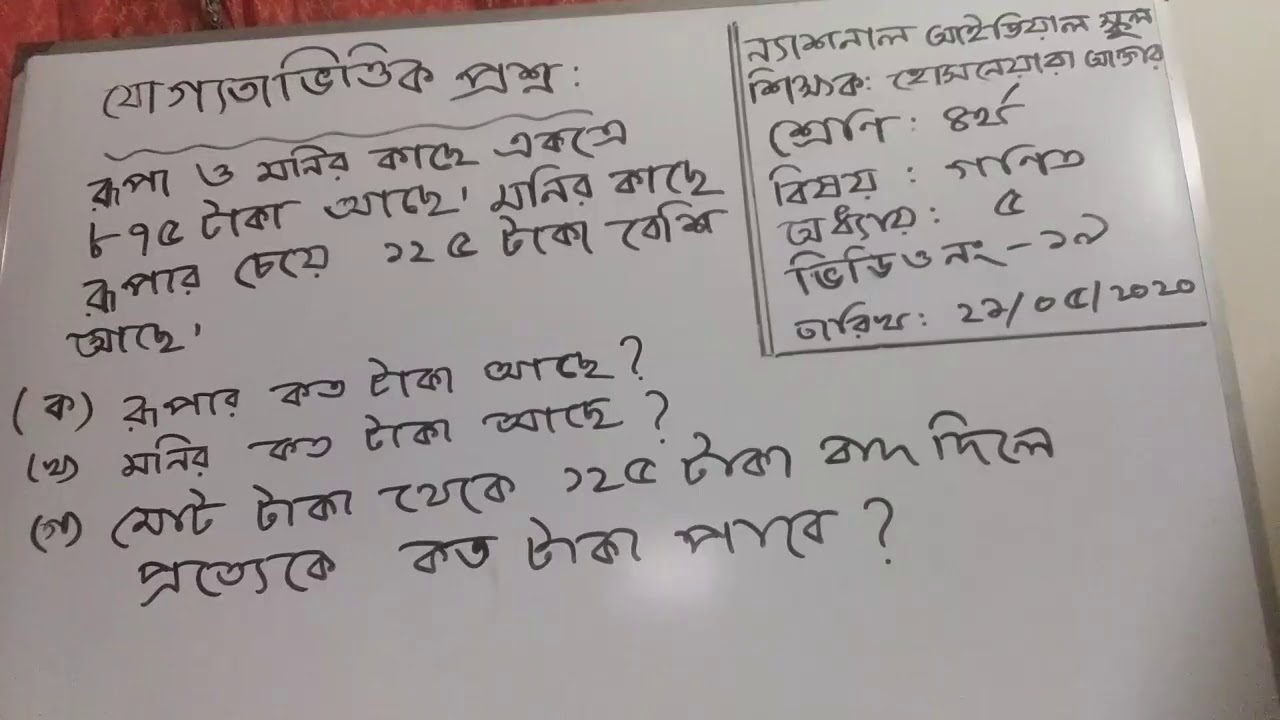 যোগ্যতাভিত্তিক প্রশ্ন:
রূপা ও মনির কাছে একত্রে
৮৭৫ টাকা আছে। মনির কাছে
রূপার চেয়ে ১২৫ টাকা বেশি
আছে।
(ক) রূপার কত টাকা আছে?
(খ) মনির কত টাকা আছে?
(গ) মোট টাকা থেকে ১২৫ টাকা বাদ দিলে
প্রত্যেকে কত টাকা পাবে?
ন্যাশনাল আইডিয়াল স্কুল
শিক্ষক: হোসনেয়ারা আক্তার
শ্রেণি: ৪র্থ
বিষয়: গণিত
অধ্যায়: ৫
ভিডিও নং - ১৯
তারিখ: ২১/০৫/২০২০